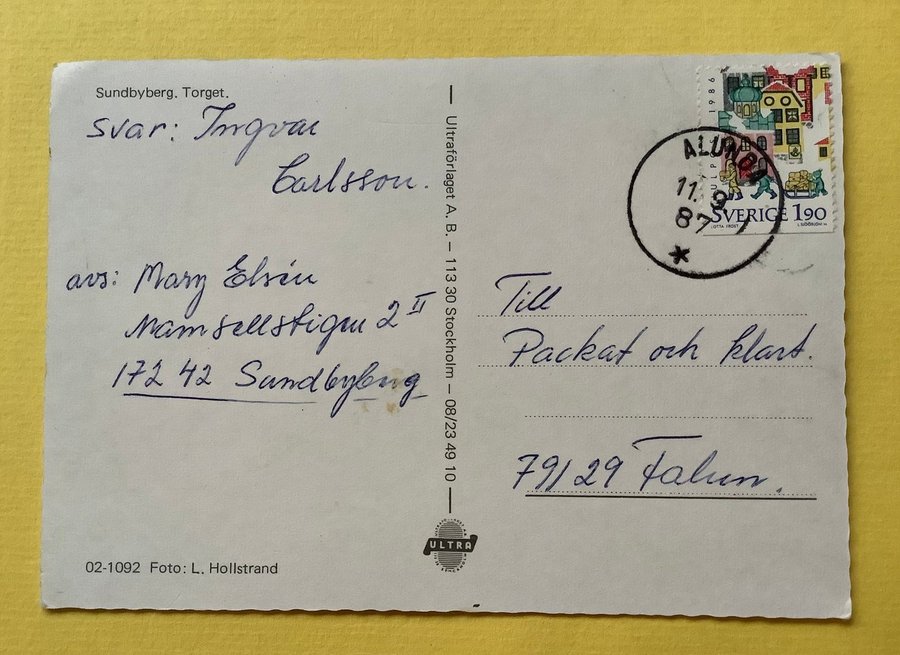 Sundbyberg. Torget.
svar: Ingvar
Carlsson.
avs: Mary Elvén
Mamsellstigen 2 II
172 42 Sundbyberg
02-1092 Foto: L. Hollstrand
Ultraförlaget A. B. – 113 30 Stockholm – 08/23 49 10
ULTRA
1986
SVERIGE 1.90
ALUNDA
11. 9
87
Till
Packat och klart.
791 29 Falun.